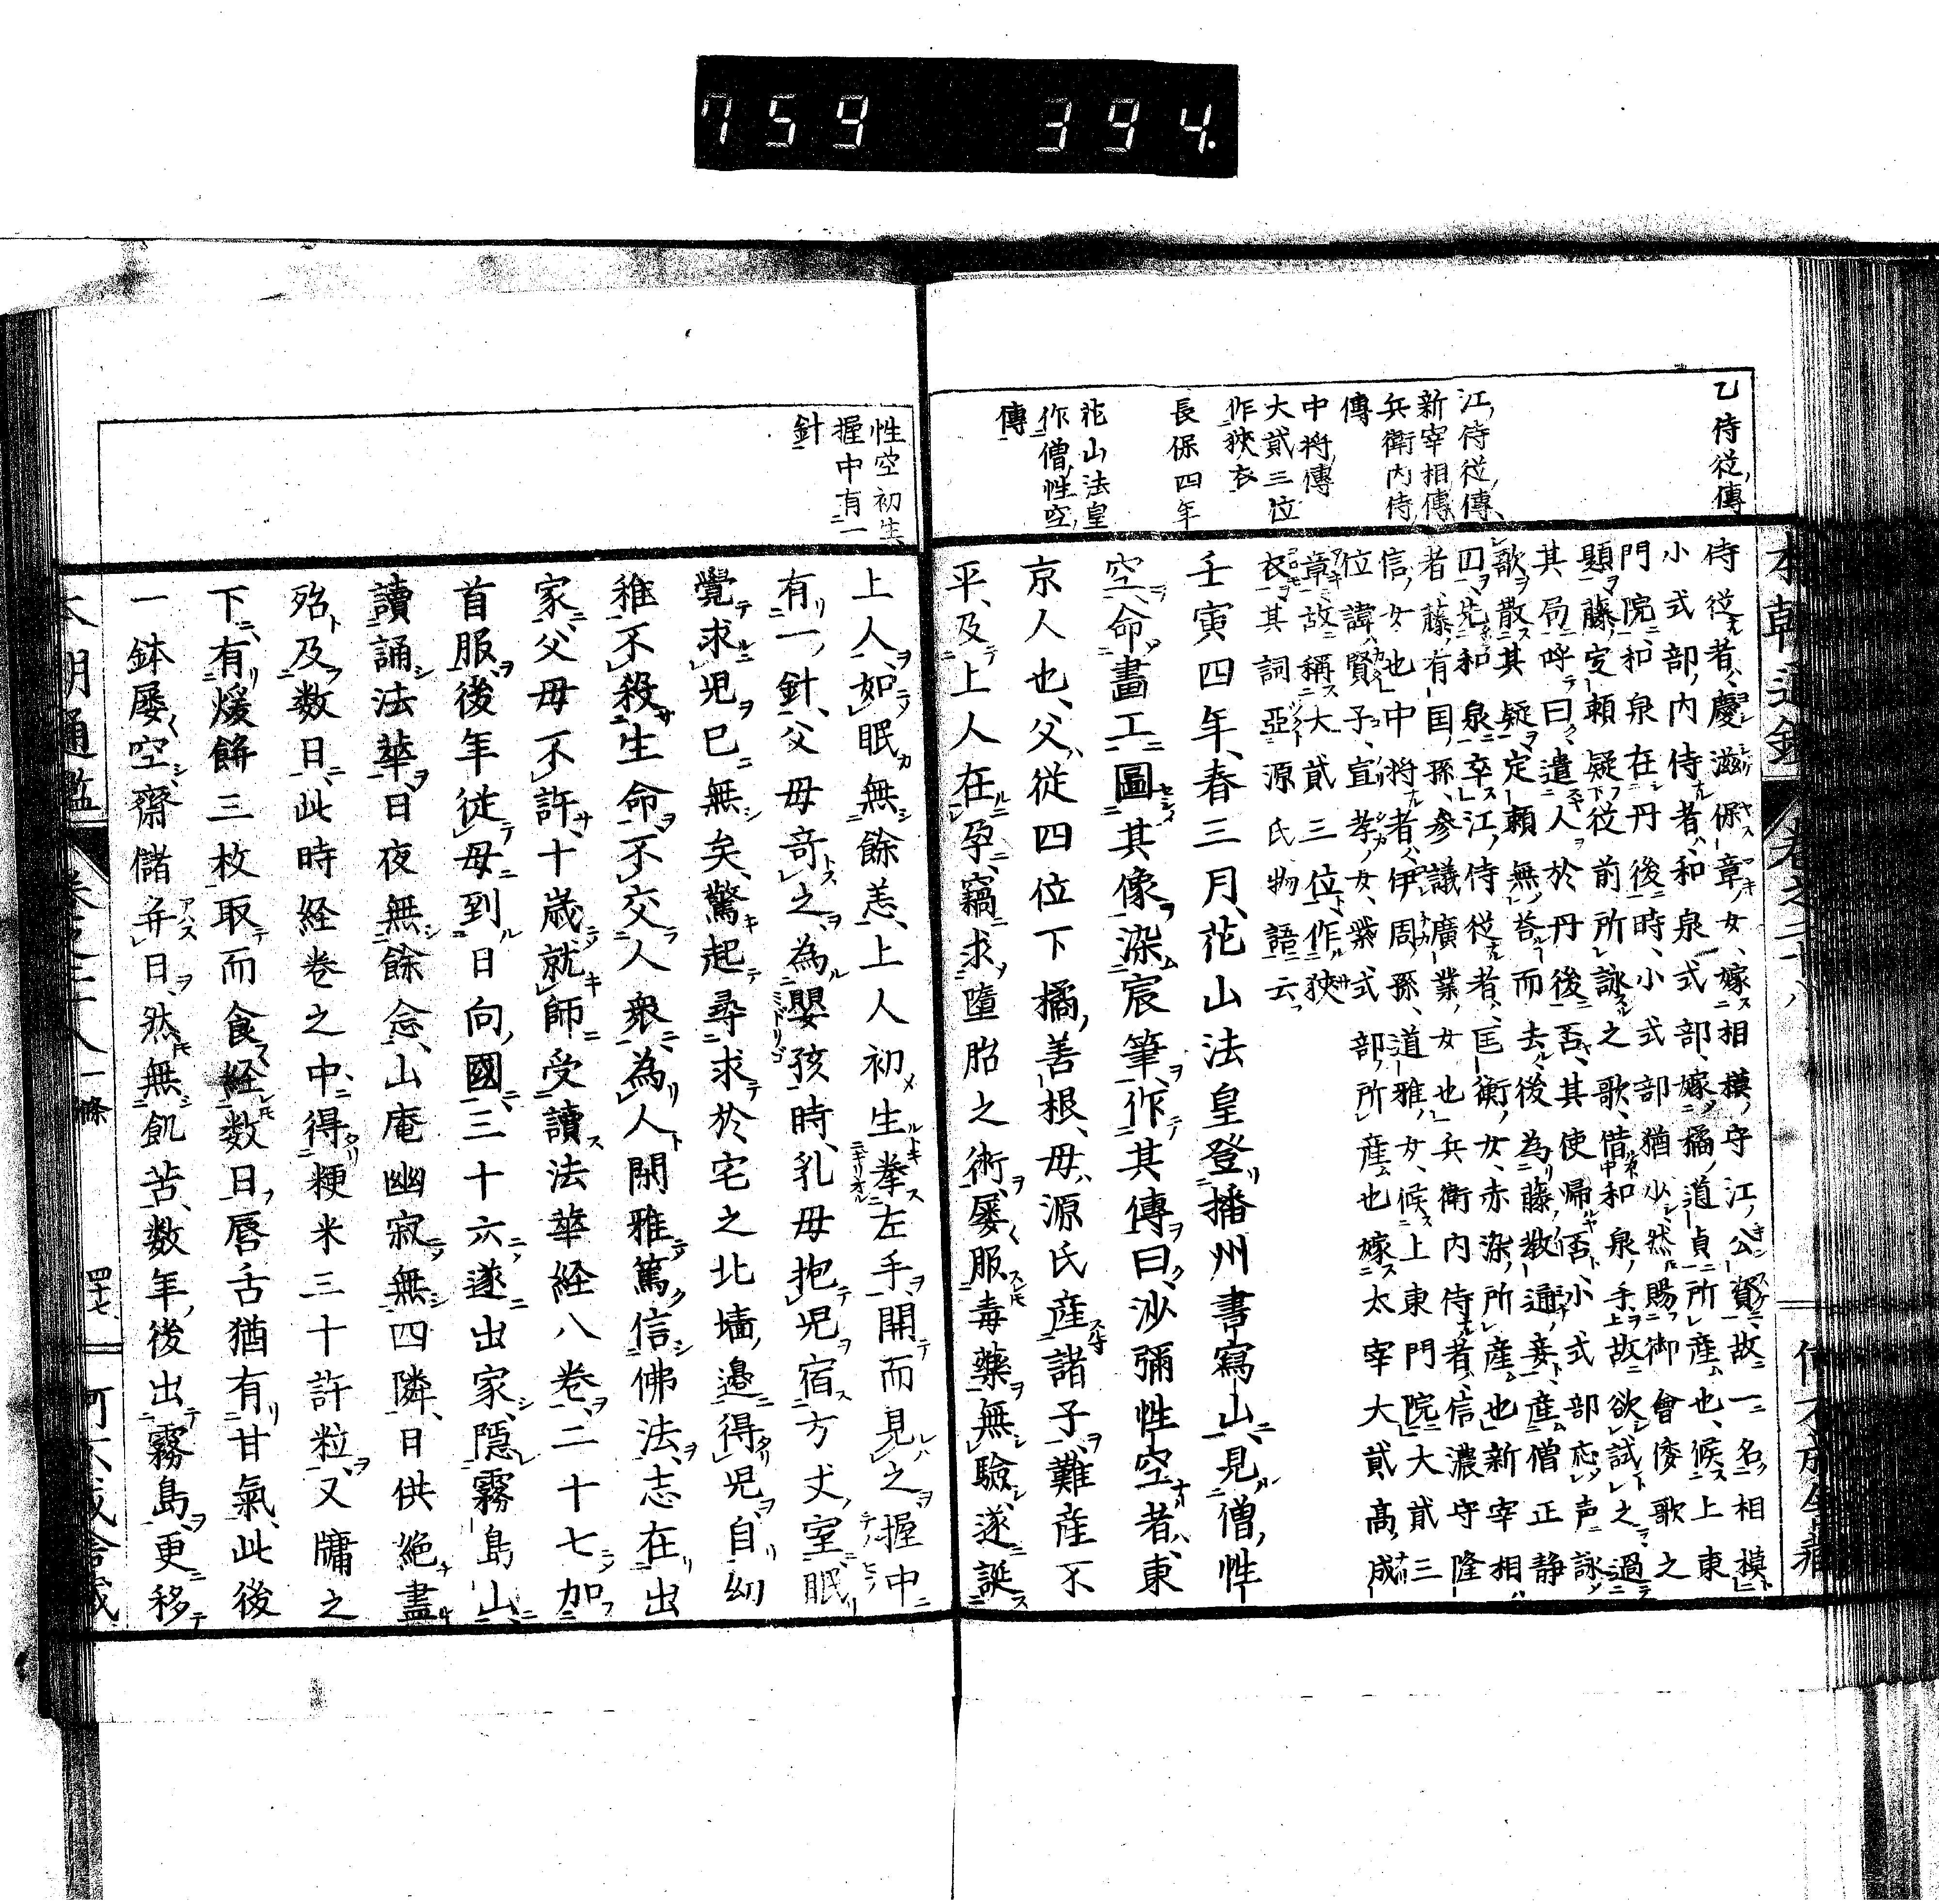 759 394.
乙侍従傳
江侍従傳
新宰相傳
兵衛内侍
傳
中将傳
大貳三位
作狹衣
長保四年
花山法皇
作僧性空
傳
侍従者、慶滋保章女、嫁相模守江公資、故一名相模
小式部内侍者、和泉式部、嫁橘道貞所産也、候上東
門院、和泉在丹後時、小式部猶少、然賜御會倭歌之
題、藤定頼疑従前所詠之歌、借和泉手、故欲試之、過
其局呼曰、遣人於丹後否、其使帰否、小式部応声詠
歌散其疑、定頼無答而去、後為藤教通妾、産僧正静
四、先和泉卒、江侍従者、匡衡女、赤染所産也、新宰相
者、藤有国孫、参議廣業女也、兵衛内侍者、信濃守隆
信女也、中将者、伊周孫、道雅女、候上東門院、大貳三
位諱賢子、宣孝女、紫式部所産也、嫁太宰大貳高成
章、故稱大貳三位、作狹
衣、其詞亞源氏物語云、
壬寅四年、春三月、花山法皇登播州書寫山、見僧性
空、命畫工圖其像、染宸筆、作其傳曰、沙彌性空者、東
京人也、父従四位下橘善根、母源氏産諸子、難産不
平、及上人在孕、竊求墮胎之術、屡服毒藥無驗、遂誕
性空初生
握中有一
針
上人、如眠無餘恙、上人初生拳左手、開而見之、握中
有一針、父母奇之、為嬰孩時、乳母抱児宿方丈室、眠
覺求児已無矣、驚起尋求於宅之北墻邊得児、自幼
稚不殺生命、不交人衆、為人閑雅篤信佛法、志在出
家、父母不許、十歳就師受讀法華経八巻、二十七加
首服、後年従母到日向國、三十六遂出家、隠霧島山、
讀誦法華、日夜無餘念、山庵幽寂無四隣、日供絶盡
殆及数日、此時経巻之中、得粳米三十許粒、又牖之
下、有煖餅三枚、取而食経数日、唇舌猶有甘氣、此後
一鉢屡空、齋儲弁日、然無飢苦、数年後出霧島、更移
本朝通鑑 一條 四十七